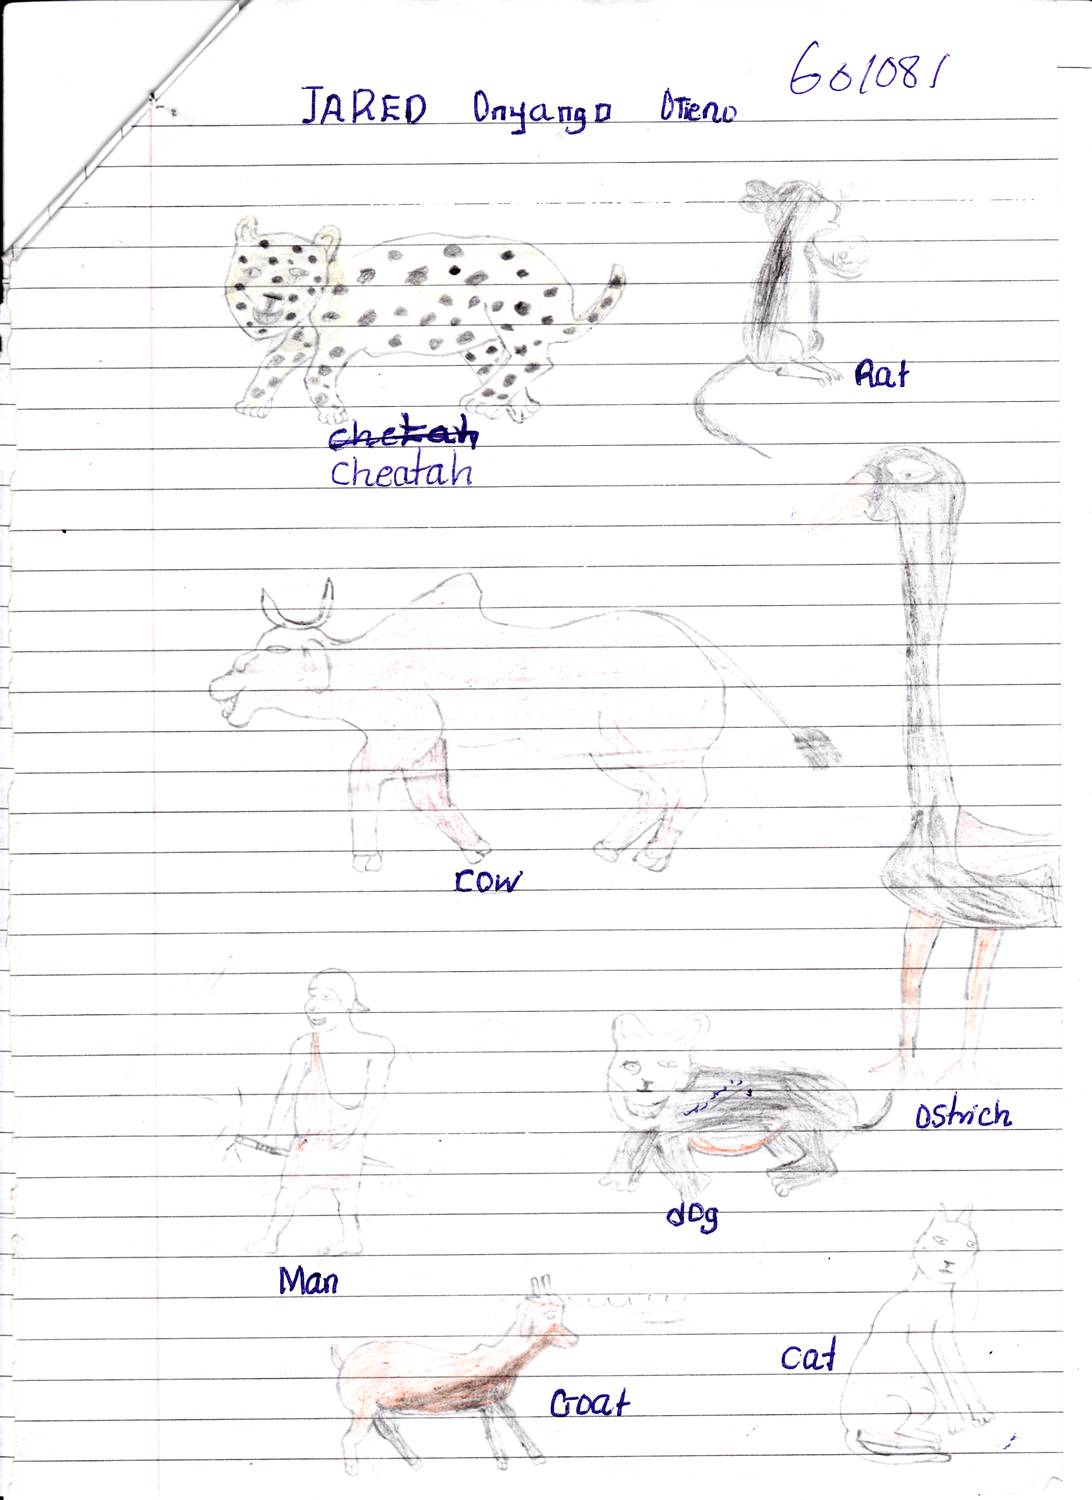 JARED Onyango Otieno 601081
Rat
chetah
Cheatah
cow
Ostrich
dog
Man
cat
Goat